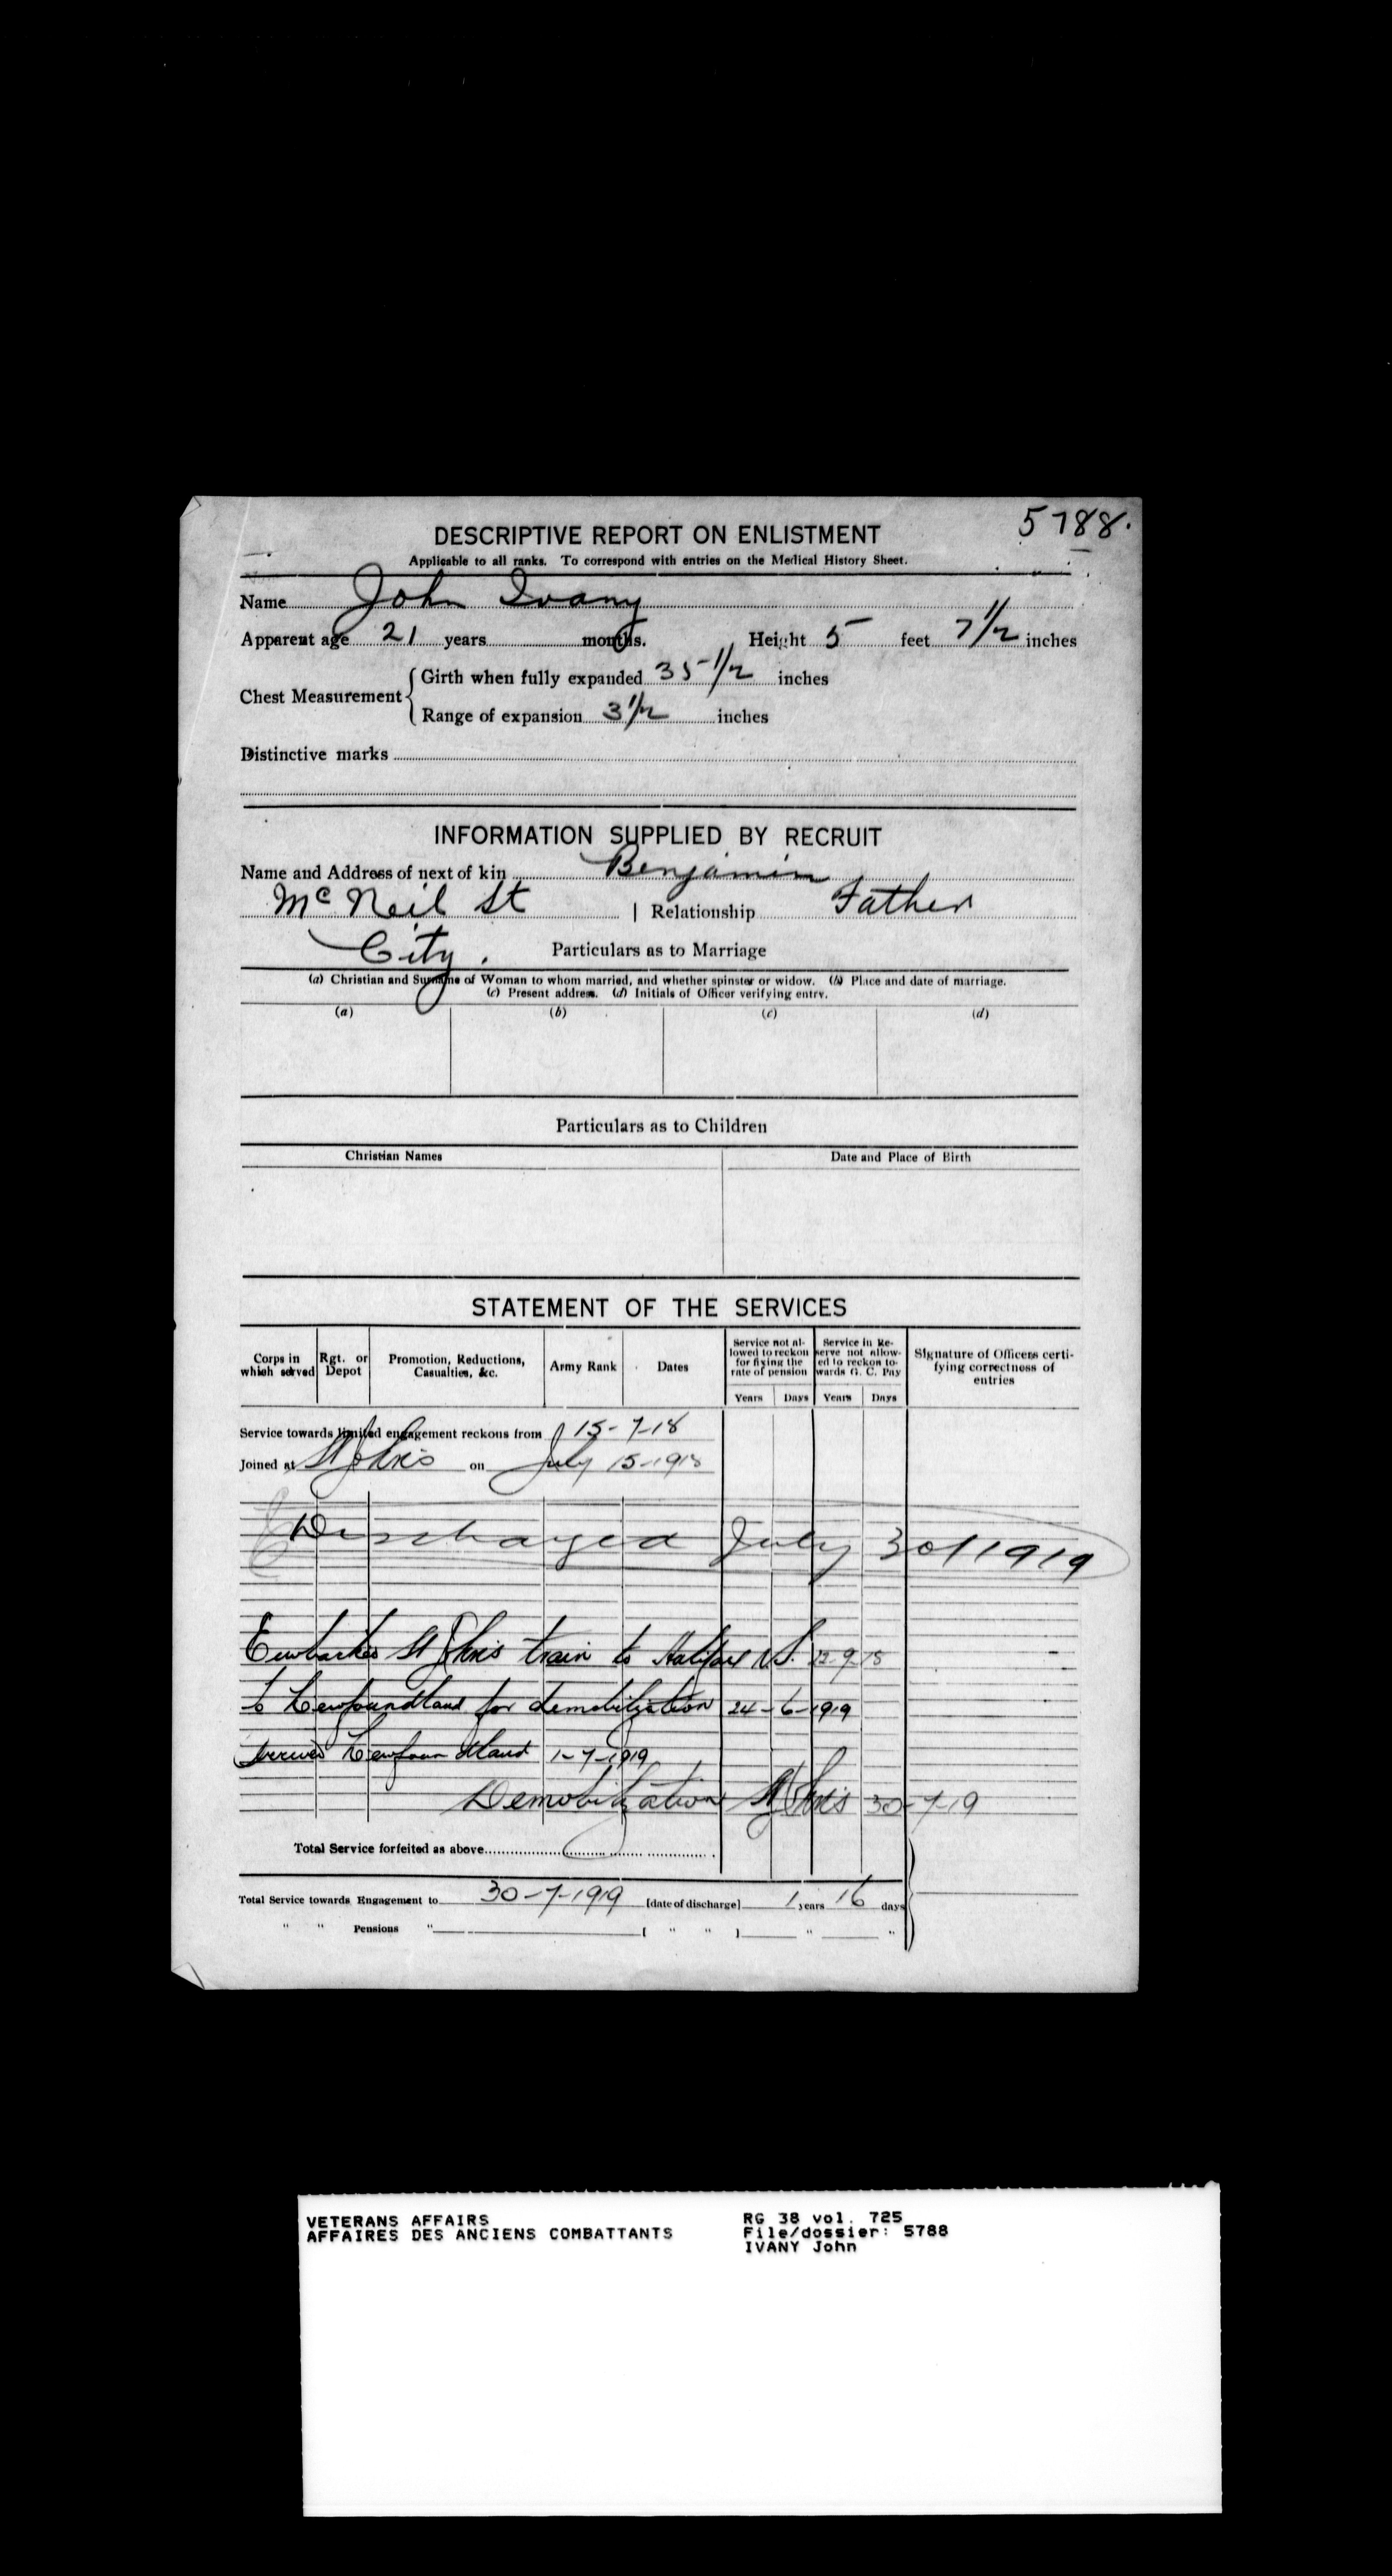 5788.
DESCRIPTIVE REPORT ON ENLISTMENT
Applicable to all ranks. To correspond with entries on the Medical History Sheet.
Name John Ivany
Apparent age 21 years months. Height 5 feet 7 1/2 inches
Chest Measurement { Girth when fully expanded 35 1/2 inches
Range of expansion 3 1/2 inches
Distinctive marks
INFORMATION SUPPLIED BY RECRUIT
Name and Address of next of kin Benjamin
McNeil St | Relationship Father
City. Particulars as to Marriage
(a) Christian and Surname of Woman to whom married, and whether spinster or widow. (b) Place and date of marriage.
(c) Present address. (d) Initials of Officer verifying entry.
(a) (b) (c) (d)
Particulars as to Children
Christian Names Date and Place of Birth
STATEMENT OF THE SERVICES
Corps in which served Rgt. or Depot Promotion, Reductions, Casualties, &c. Army Rank Dates Service not allowed to reckon for fixing the rate of pension Service in Reserve not allowed to reckon towards G. C. Pay Signature of Officers certifying correctness of entries
Years Days Years Days
Service towards limited engagement reckons from 15-7-18
Joined at St Johns on July 15-1918
Discharged July 30/1919
Embarked St Johns train to Halifax N.S. 22-9-18
to Newfoundland for demobilization 24-6-1919
Arrived Newfoundland 1-7-1919
Demobilization St Johns 30-7-19
Total Service forfeited as above
Total Service towards Engagement to 30-7-1919 [date of discharge] 1 years 16 days
" " Pensions " [ " " ] " "
VETERANS AFFAIRS RG 38 vol. 725
AFFAIRES DES ANCIENS COMBATTANTS File/dossier: 5788
IVANY John